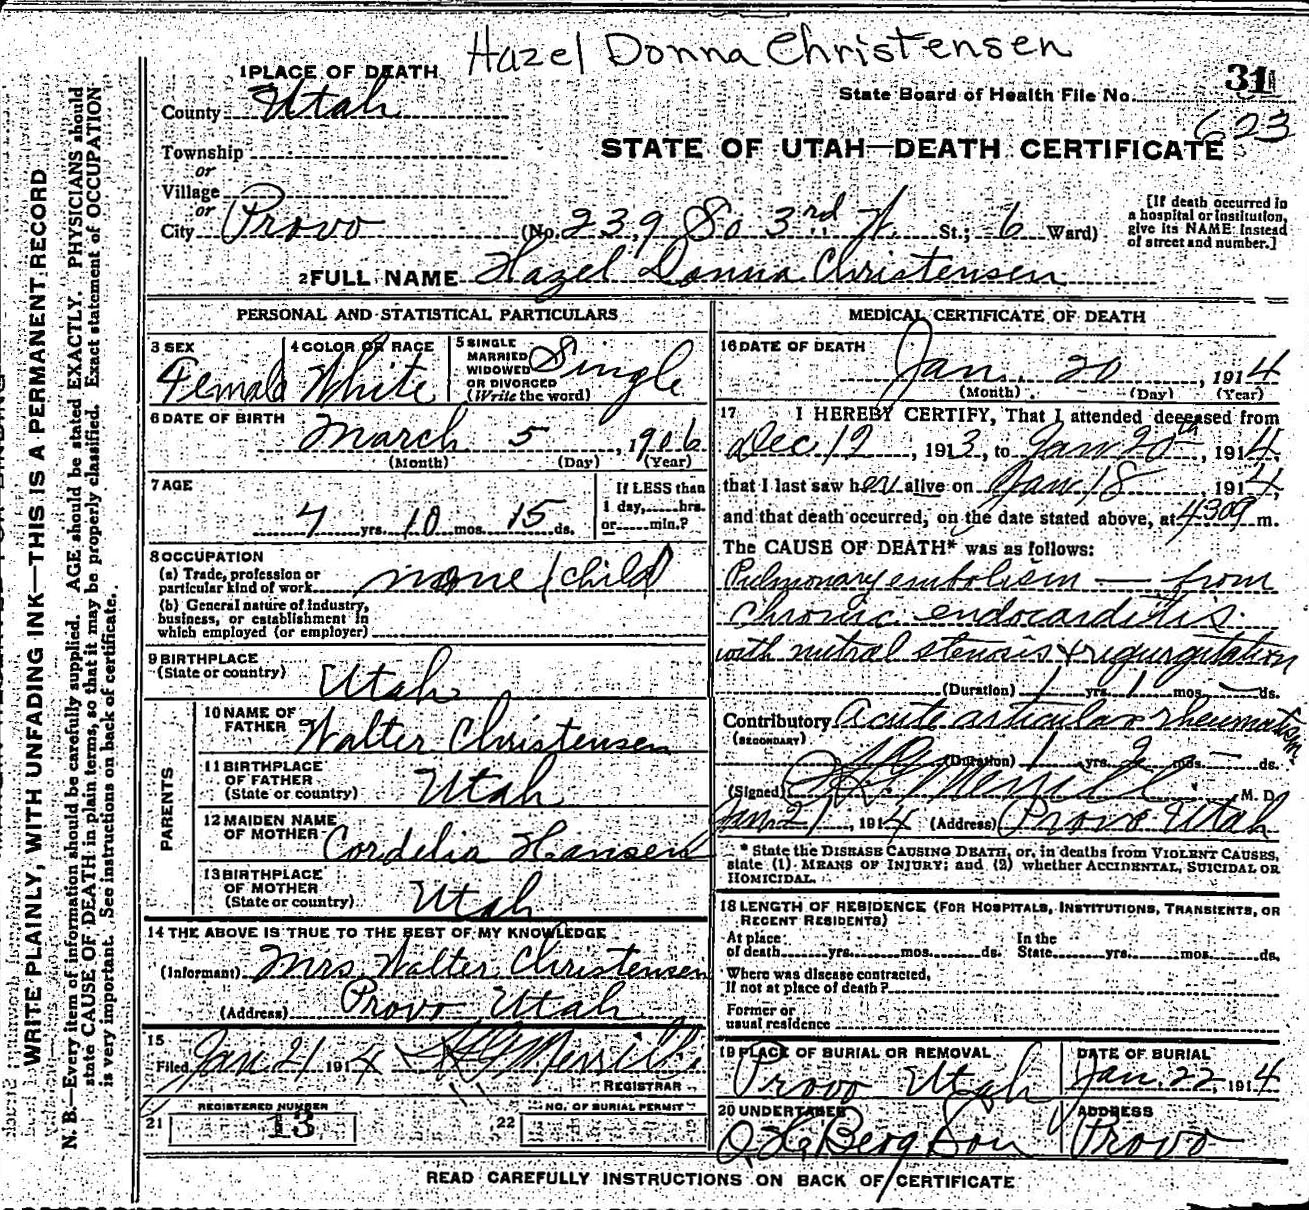 Hazel Donna Christensen
1 PLACE OF DEATH
State Board of Health File No. 31
County Utah
623
Township
or
STATE OF UTAH—DEATH CERTIFICATE
Village
or
City Provo (No. 239 So 3rd W. St.; 6 Ward)
[If death occurred in
a hospital or institution,
give its NAME instead
of street and number.]
2 FULL NAME Hazel Donna Christensen
PERSONAL AND STATISTICAL PARTICULARS
3 SEX
Female
4 COLOR OR RACE
White
5 SINGLE
MARRIED
WIDOWED
OR DIVORCED
(Write the word)
Single
6 DATE OF BIRTH
March 5, 1906
(Month) (Day) (Year)
7 AGE
7 yrs. 10 mos. 15 ds.
If LESS than
1 day, hrs.
or min.?
8 OCCUPATION
(a) Trade, profession or
particular kind of work none / child
(b) General nature of industry,
business, or establishment in
which employed (or employer)
9 BIRTHPLACE
(State or country) Utah
PARENTS
10 NAME OF
FATHER Walter Christensen
11 BIRTHPLACE
OF FATHER
(State or country) Utah
12 MAIDEN NAME
OF MOTHER Cordelia Hansen
13 BIRTHPLACE
OF MOTHER
(State or country) Utah
14 THE ABOVE IS TRUE TO THE BEST OF MY KNOWLEDGE
(Informant) Mrs. Walter Christensen
(Address) Provo Utah
15
Filed Jan 21 1914 Merrill
REGISTRAR
REGISTERED NUMBER
21 13
NO. OF BURIAL PERMIT
22
MEDICAL CERTIFICATE OF DEATH
16 DATE OF DEATH
Jan. 20, 1914
(Month) (Day) (Year)
17 I HEREBY CERTIFY, That I attended deceased from
Dec 12, 1913, to Jan 20th, 1914,
that I last saw her alive on Jan 18, 1914,
and that death occurred, on the date stated above, at m.
The CAUSE OF DEATH* was as follows:
Pulmonary embolism — from
Chronic endocarditis
with mitral stenosis & regurgitation
(Duration) 1 yrs. 1 mos. — ds.
Contributory Acute articular rheumatism
(SECONDARY)
(Duration) 1 yrs. 2 mos. — ds.
(Signed) Merrill M. D.
Jan 21, 1914 (Address) Provo Utah
* State the DISEASE CAUSING DEATH, or, in deaths from VIOLENT CAUSES,
state (1) MEANS OF INJURY; and (2) whether ACCIDENTAL, SUICIDAL OR
HOMICIDAL.
18 LENGTH OF RESIDENCE (FOR HOSPITALS, INSTITUTIONS, TRANSIENTS, OR
RECENT RESIDENTS)
At place
of death yrs. mos. ds.
In the
State yrs. mos. ds.
Where was disease contracted,
If not at place of death?
Former or
usual residence
19 PLACE OF BURIAL OR REMOVAL
Provo Utah
DATE OF BURIAL
Jan. 22, 1914
20 UNDERTAKER
Berg Son
ADDRESS
Provo
READ CAREFULLY INSTRUCTIONS ON BACK OF CERTIFICATE
WRITE PLAINLY, WITH UNFADING INK—THIS IS A PERMANENT RECORD
N. B.—Every item of information should be carefully supplied. AGE should be stated EXACTLY. PHYSICIANS should
state CAUSE OF DEATH in plain terms, so that it may be properly classified. Exact statement of OCCUPATION
is very important. See instructions on back of certificate.